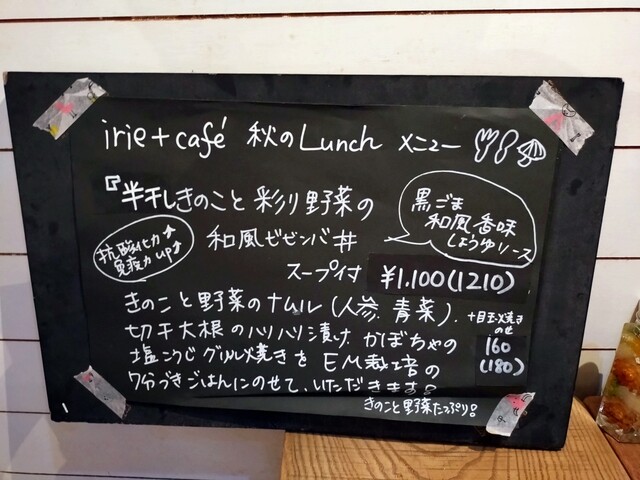 irie+café 秋のLunch メニュー
『半干しきのこと彩り野菜の
和風ビビンバ丼
スープ付 ¥1.100(1210)
抗酸化力↑
免疫力up↑
黒ごま
和風香味
しょうゆソース
きのこと野菜のナムル(人参、青菜)、
切干大根のハリハリ漬け かぼちゃの
塩こうじグリル焼きを EM栽培の
7分づきごはんにのせて、いただきます。
+目玉焼き
のせ
160
(180)
きのこと野菜たっぷり。